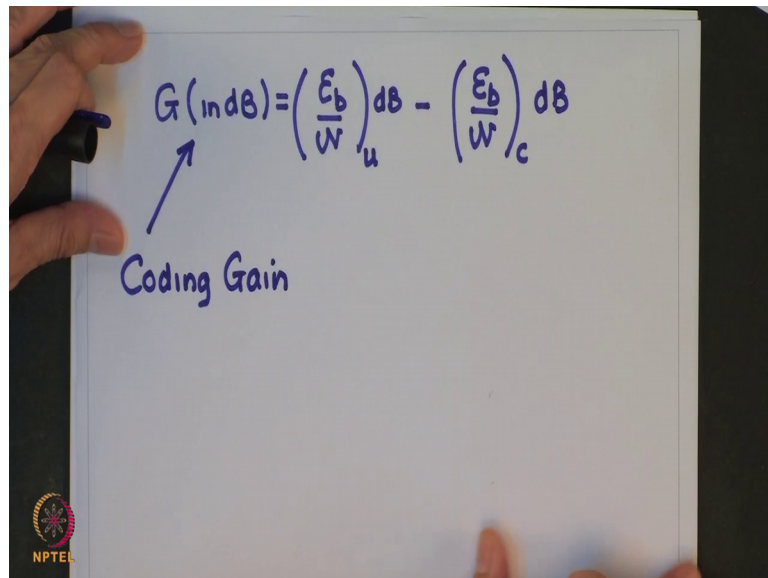 G (in dB) = (Eb/N)u dB - (Eb/N)c dB
Coding Gain
NPTEL